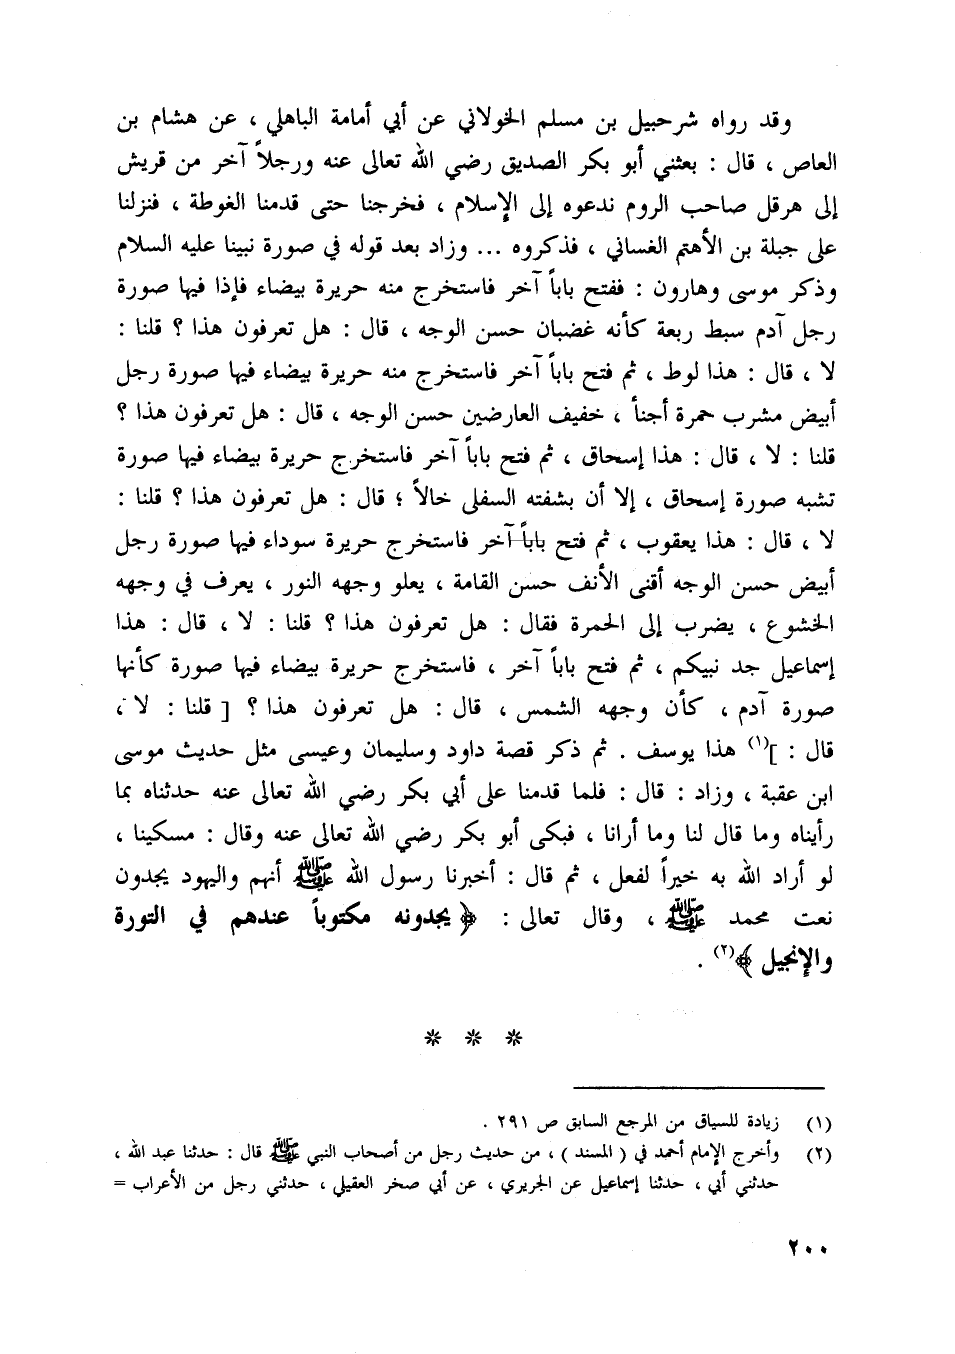 وقد رواه شرحبيل بن مسلم الخولاني عن أبي أمامة الباهلي ، عن هشام بن
العاص ، قال : بعثني أبو بكر الصديق رضي الله تعالى عنه ورجلاً آخر من قريش
إلى هرقل صاحب الروم ندعوه إلى الإسلام ، فخرجنا حتى قدمنا الغوطة ، فنزلنا
على جبلة بن الأهتم الغساني ، فذكروه ... وزاد بعد قوله في صورة نبينا عليه السلام
وذكر موسى وهارون : ففتح باباً آخر فاستخرج منه حريرة بيضاء فإذا فيها صورة
رجل آدم سبط ربعة كأنه غضبان حسن الوجه ، قال : هل تعرفون هذا ؟ قلنا :
لا ، قال : هذا لوط ، ثم فتح باباً آخر فاستخرج منه حريرة بيضاء فيها صورة رجل
أبيض مشرب حمرة أجنأ ، خفيف العارضين حسن الوجه ، قال : هل تعرفون هذا ؟
قلنا : لا ، قال : هذا إسحاق ، ثم فتح باباً آخر فاستخرج حريرة بيضاء فيها صورة
تشبه صورة إسحاق ، إلا أن بشفته السفلى خالاً ؛ قال : هل تعرفون هذا ؟ قلنا :
لا ، قال : هذا يعقوب ، ثم فتح باباً آخر فاستخرج حريرة سوداء فيها صورة رجل
أبيض حسن الوجه أقنى الأنف حسن القامة ، يعلو وجهه النور ، يعرف في وجهه
الخشوع ، يضرب إلى الحمرة فقال : هل تعرفون هذا ؟ قلنا : لا ، قال : هذا
إسماعيل جد نبيكم ، ثم فتح باباً آخر ، فاستخرج حريرة بيضاء فيها صورة كأنها
صورة آدم ، كأن وجهه الشمس ، قال : هل تعرفون هذا ؟ [ قلنا : لا ،
قال : ](١) هذا يوسف . ثم ذكر قصة داود وسليمان وعيسى مثل حديث موسى
ابن عقبة ، وزاد : قال : فلما قدمنا على أبي بكر رضي الله تعالى عنه حدثناه بما
رأيناه وما قال لنا وما أرانا ، فبكى أبو بكر رضي الله تعالى عنه وقال : مسكينا ،
لو أراد الله به خيراً لفعل ، ثم قال : أخبرنا رسول الله ﷺ أنهم واليهود يجدون
نعت محمد ﷺ ، وقال تعالى : ﴿ يجدونه مكتوباً عندهم في التورة
والإنجيل ﴾(٢) .
* * *
(١) زيادة للسياق من المرجع السابق ص ٢٩١ .
(٢) وأخرج الإمام أحمد في ( المسند ) ، من حديث رجل من أصحاب النبي ﷺ قال : حدثنا عبد الله ،
حدثني أبي ، حدثنا إسماعيل عن الجريري ، عن أبي صخر العقيلي ، حدثني رجل من الأعراب =
٢٠٠